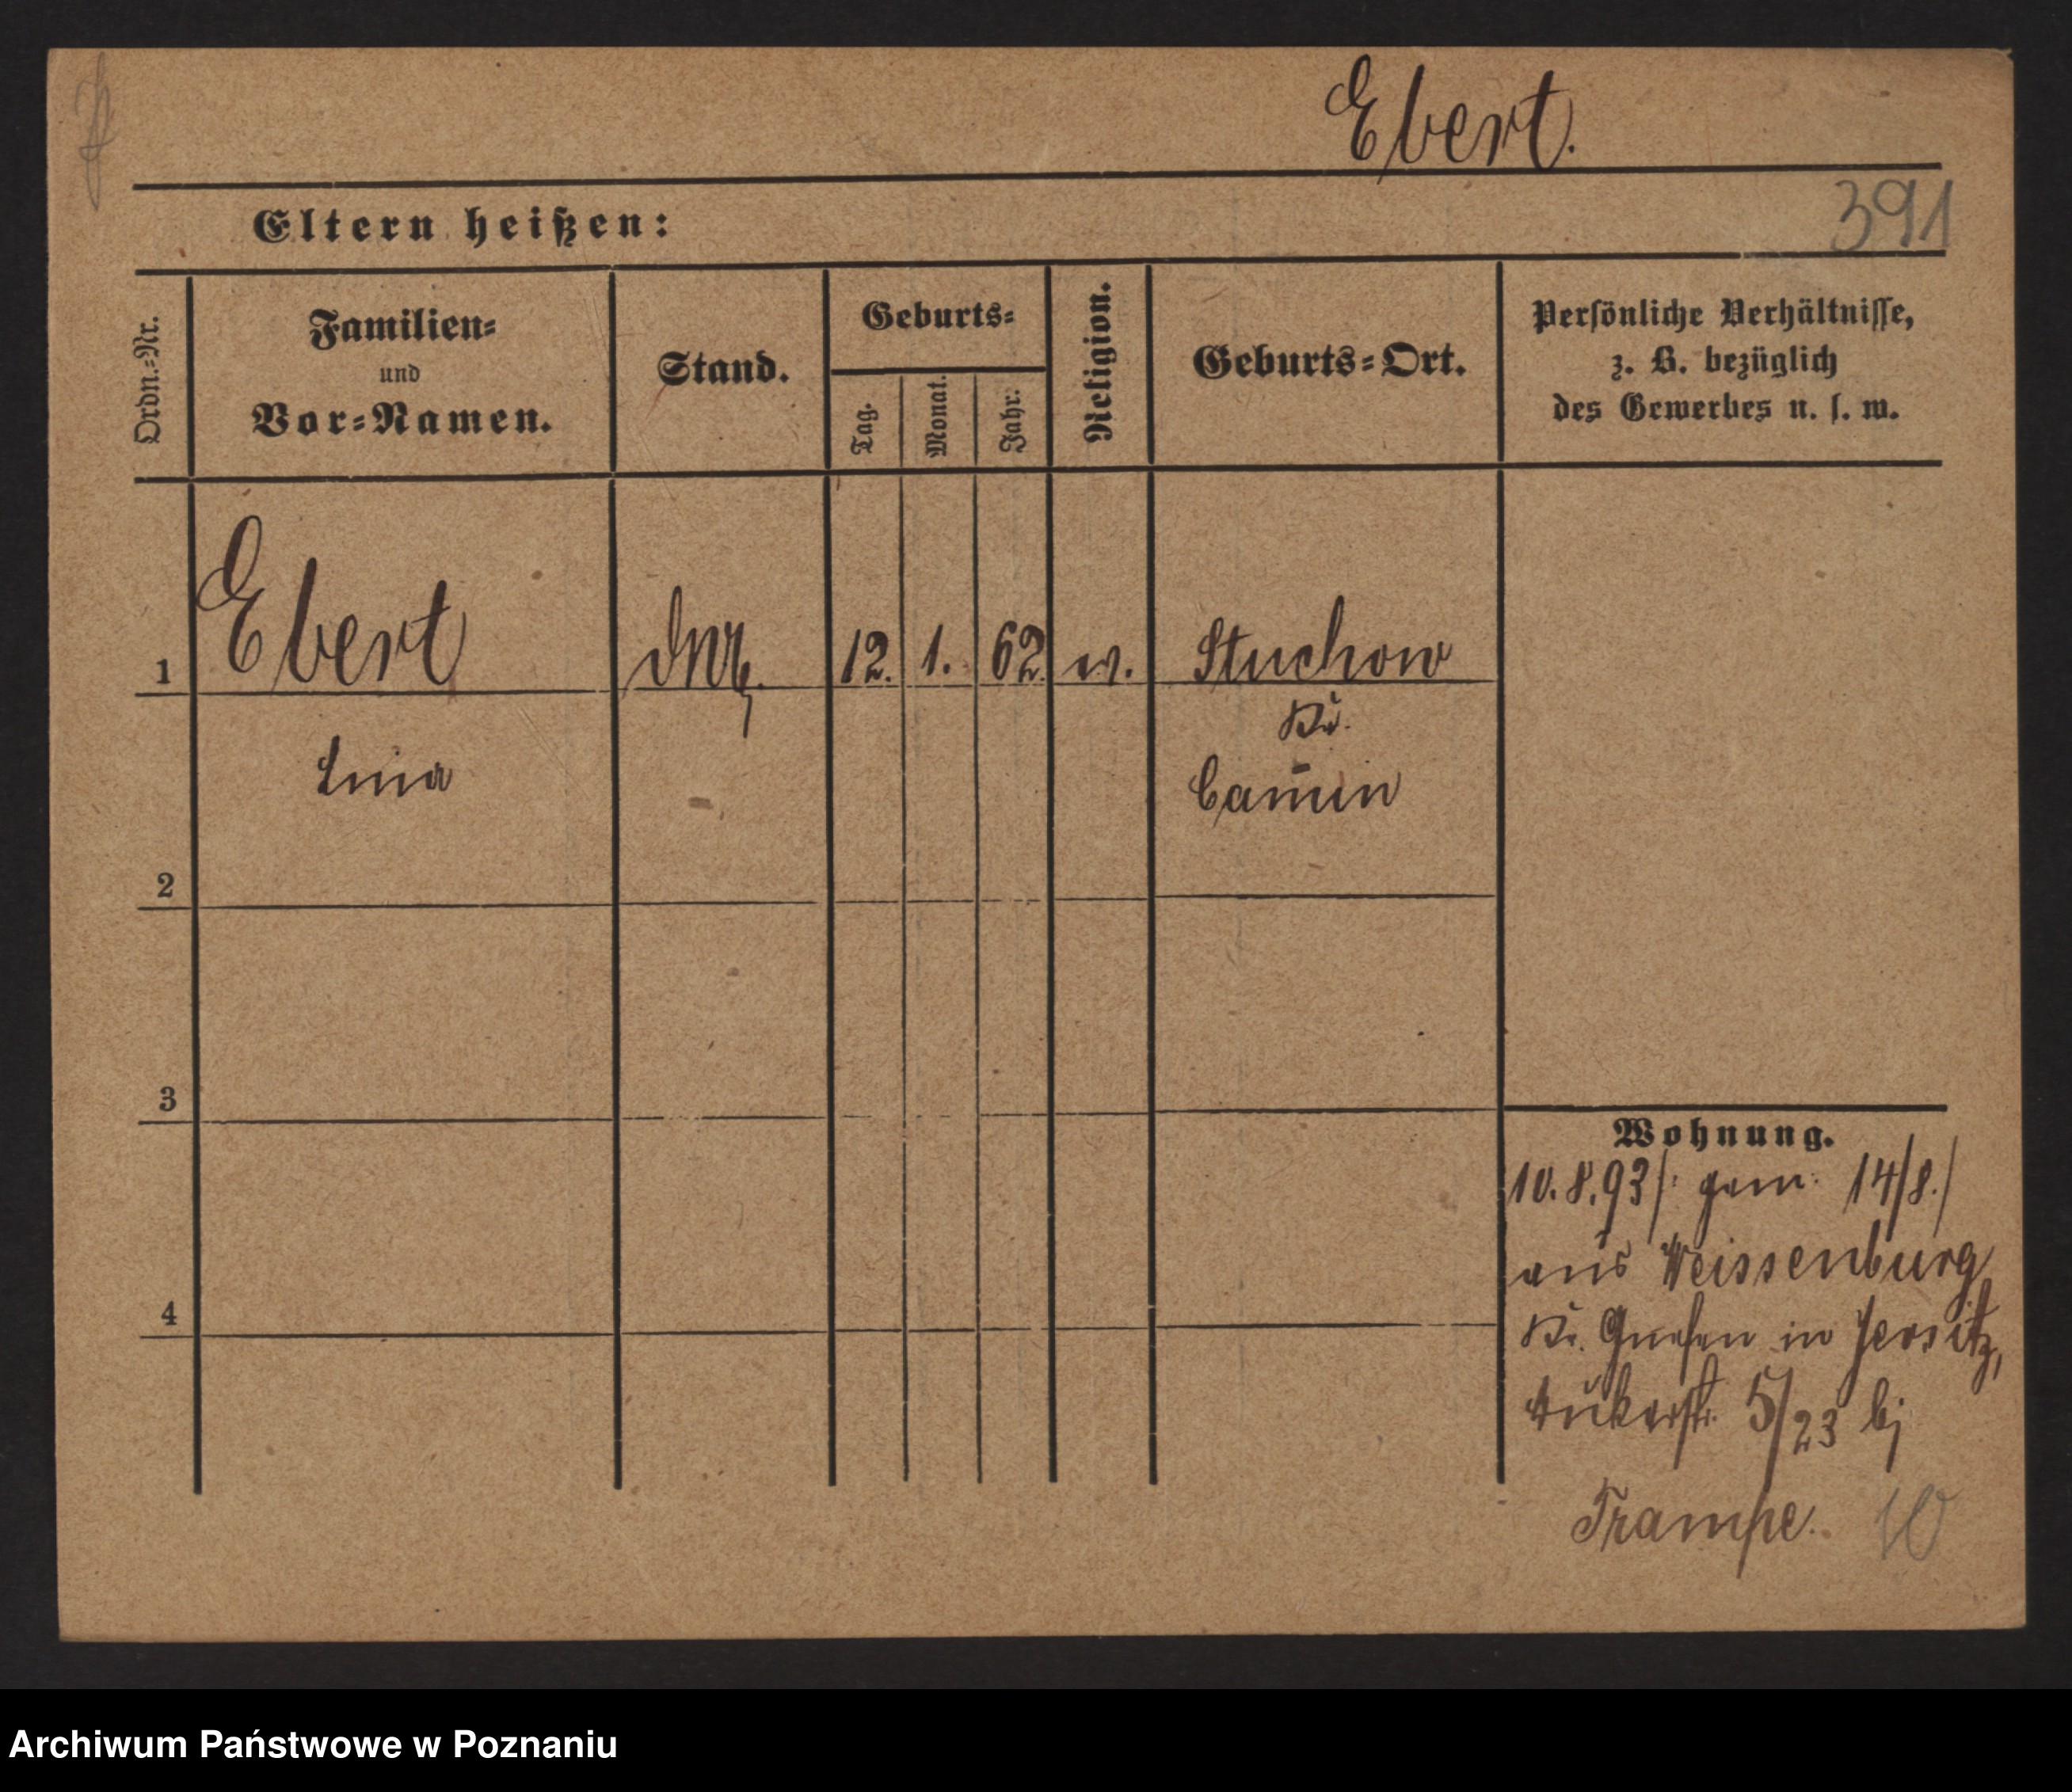 Ebert.
391
Eltern heißen:
Ordn.-Nr.
Familien-
und
Vor-Namen.
Stand.
Geburts-
Tag.
Monat.
Jahr.
Religion.
Geburts-Ort.
Persönliche Verhältnisse,
z. B. bezüglich
des Gewerbes u. s. w.
1 Ebert 12. 1. 62. ev. Stuchow
Kr.
Lina Camin
2
3
4
Wohnung.
10.8.93/: gem: 14/8./
aus Weissenburg
Kr. Gnesen in Jersitz,
5/23 bj
Trampe. 10
Archiwum Państwowe w Poznaniu